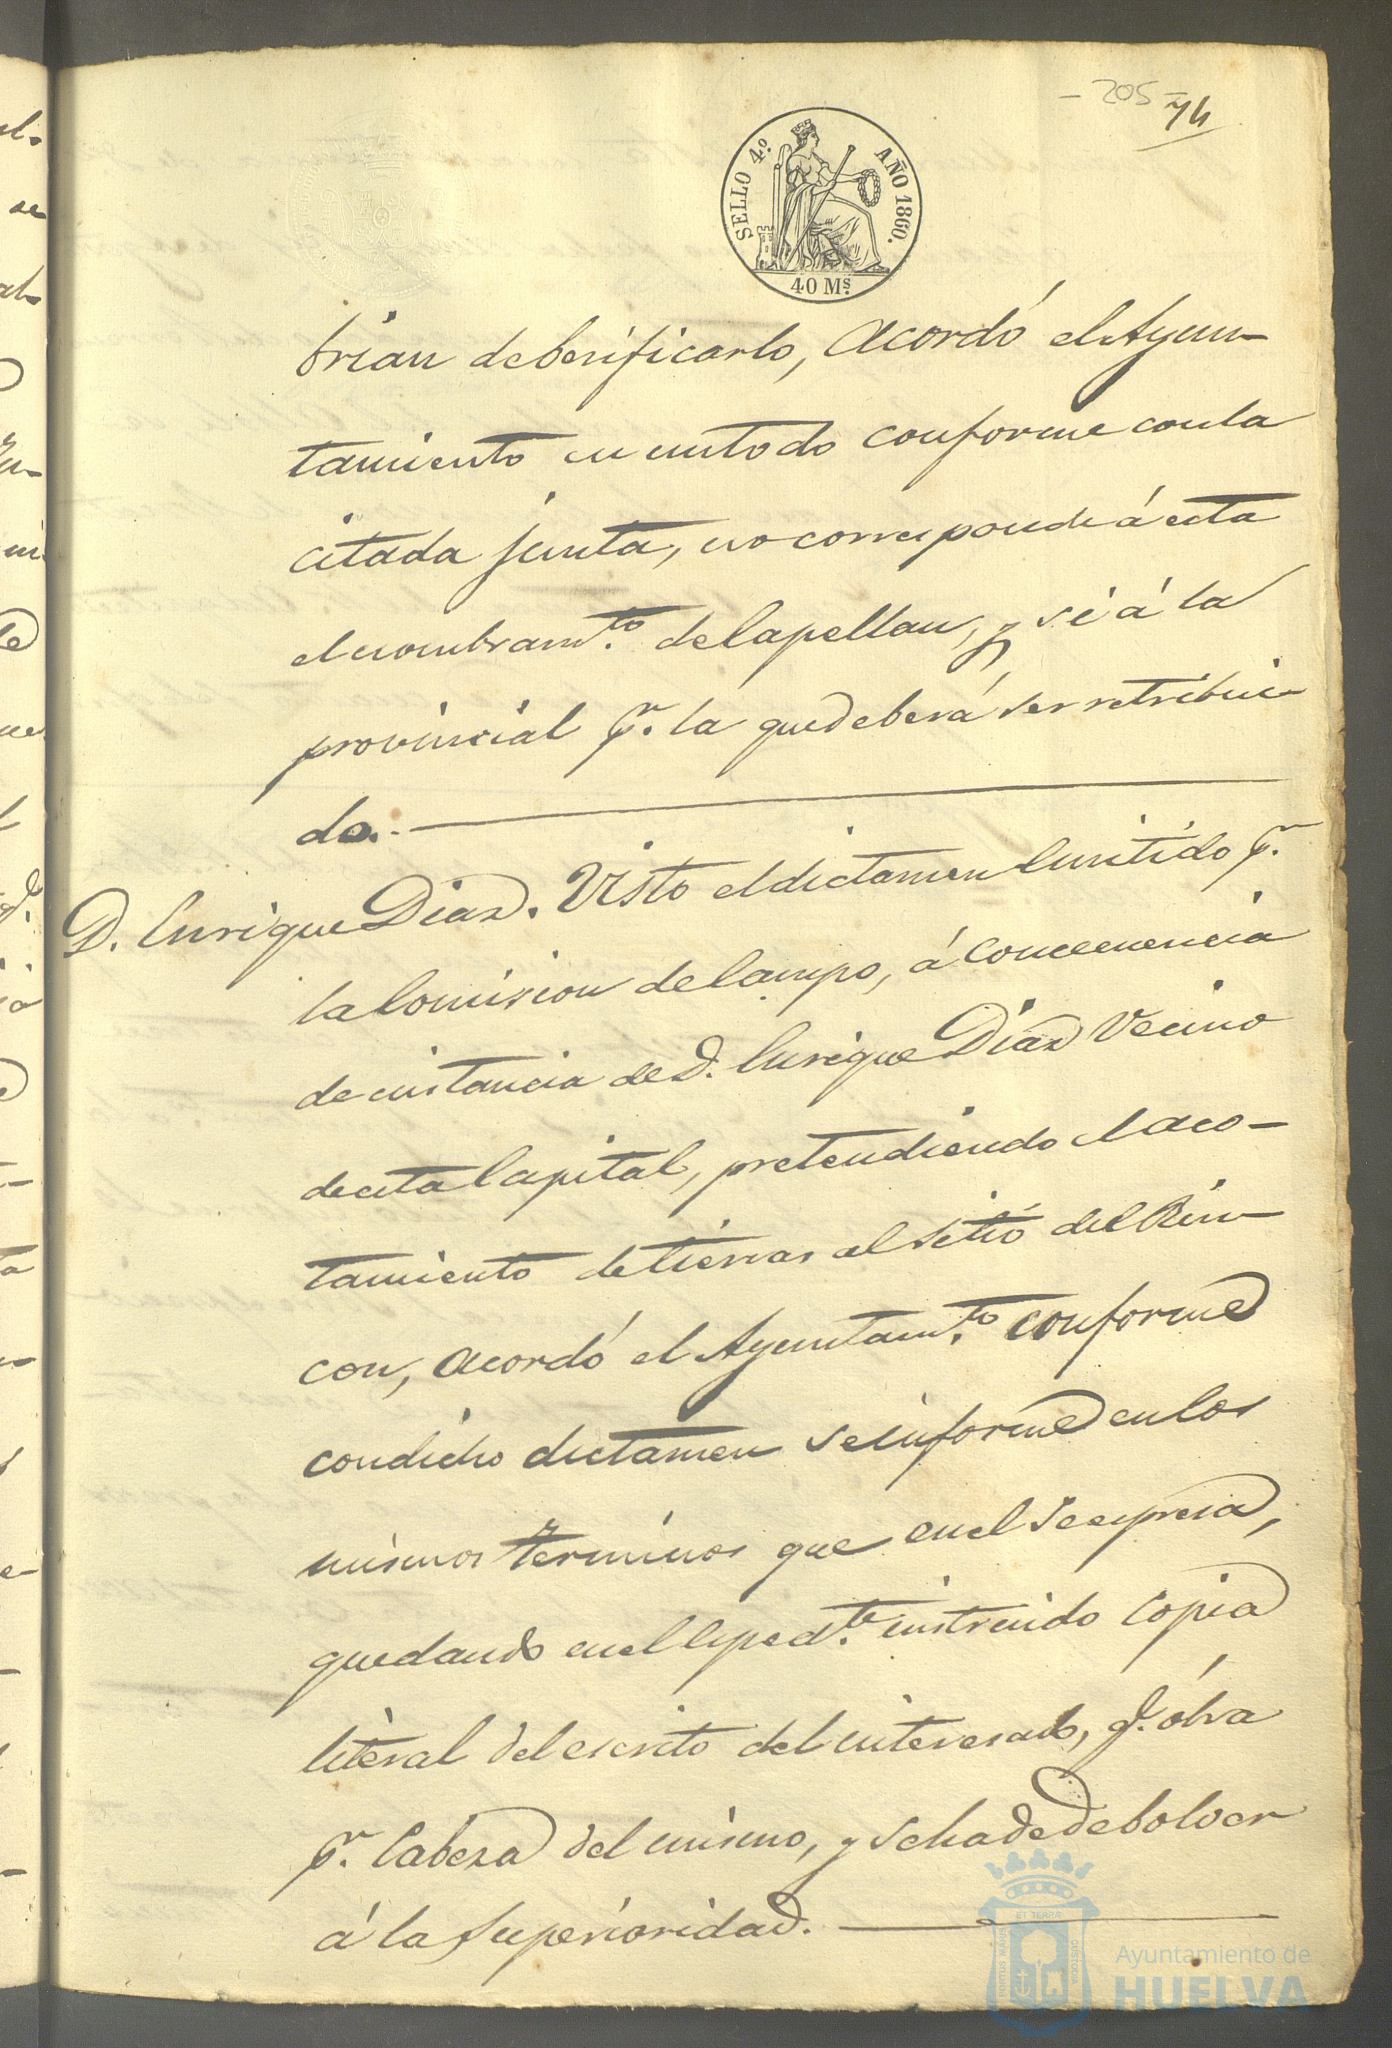 - 205 -
74
SELLO 4.º AÑO 1860.
40 Ms.
brian de berificarlo, acordó el Ayun-
tamiento en un todo conforme con la
citada junta, no corresponde á esta
el nombramto. de Capellan, y si á la
provincial pr. la que deberá ser retribui-
do.
D. Enrique Diaz. Visto el dictamen Emitido pr.
la Comision de Campo, á consecuencia
de instancia de D. Enrique Diaz Vecino
de esta Capital, pretendiendo el aco-
tamiento de tierras al sitio del Rin-
con, acordó el Ayuntamto. conforme
con dicho dictamen se informe en los
mismos terminos que en el se espresa,
quedando en el Espedte. instruido Copia
literal del escrito del interesado, qe. obra
pr. Cabeza del mismo, y se ha de debolver
á la Superioridad.
PORTUS MARIS ET TERRAE CUSTODIA
Ayuntamiento de
HUELVA